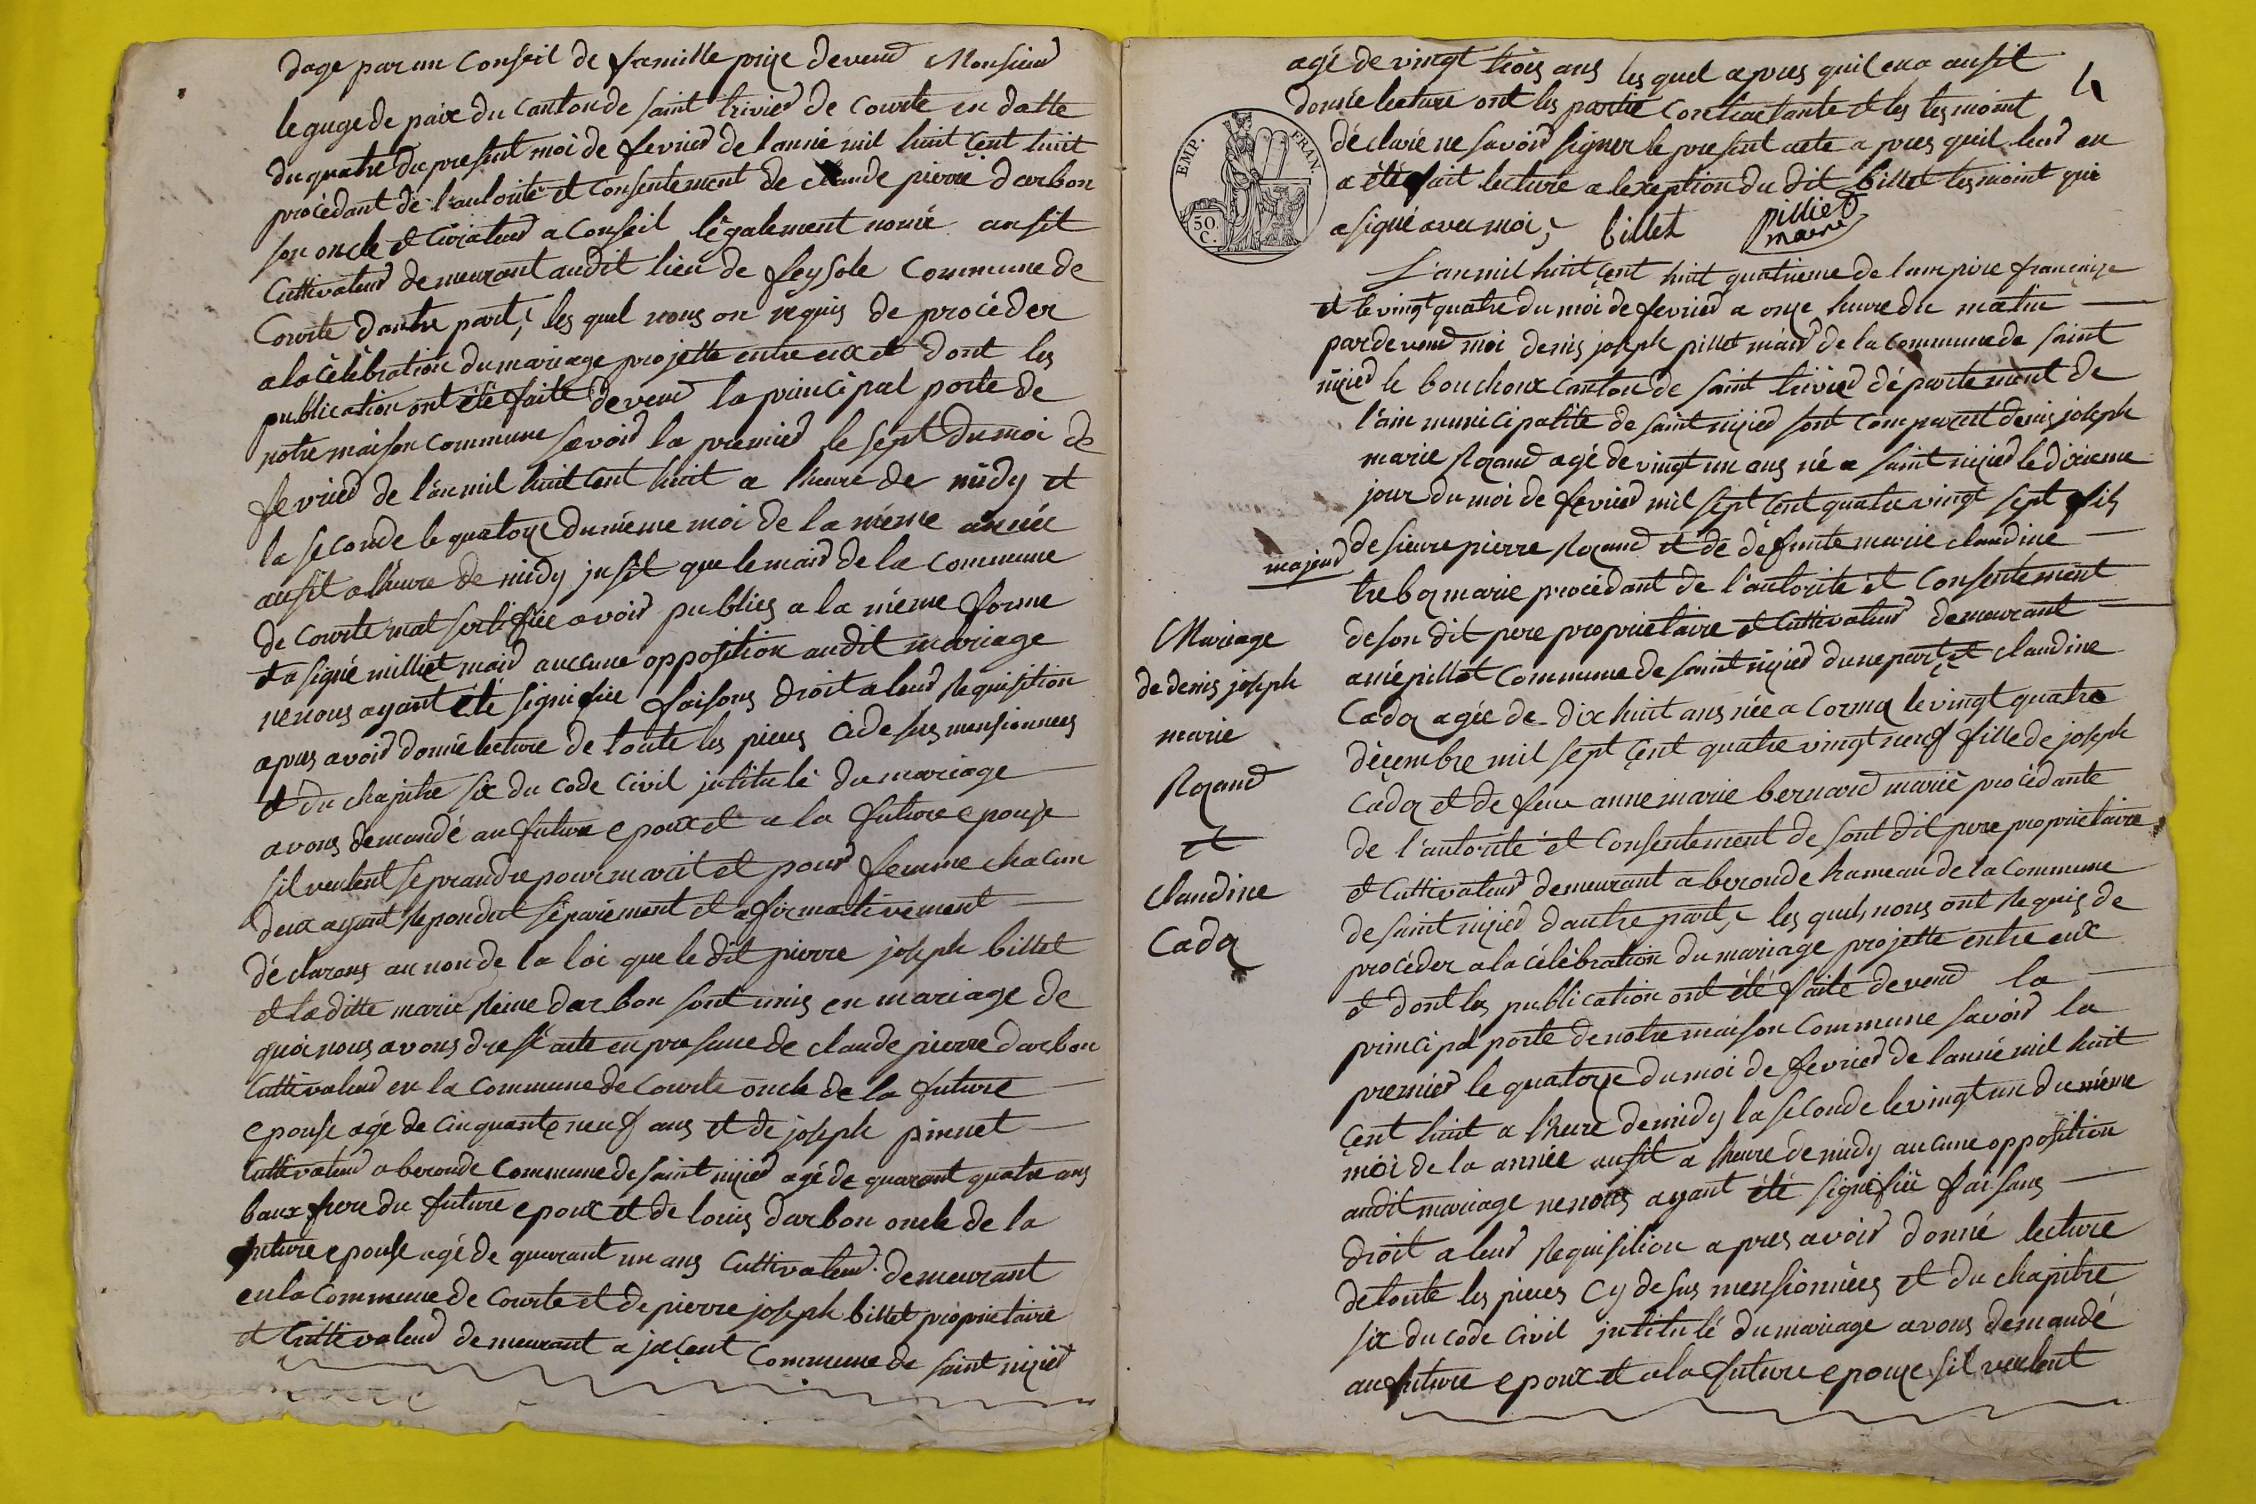 dage par un Conseil de famille prize devend Monsieur
le guge de paix du Canton de saint trivier de Courte en datte
du quatre du present moi de fevrier de lannée mil huit çent huit
procédant de l'autorité et Consentement de claude pierre darbon
son oncle et Curateur a Conseil légalement nomé ausit
Cultivateur demeurant audit lieu de feysole Commune de
Courte dautre part, les quel nous on requis de procéder
a la célébration du mariage projette entre eux et dont les
publication ont été faite devend la principal porte de
notre maison commune savoir la premier le sept du moi de
fevrier de l'an mil huit Cent huit a l'heure de midy et
la seconde le quatorze du même moi de la même année
ausit a lheure de midy jusit que le maire de la Commune
de Courte mat sertifiée avoir publies a la même forme
et a signé milliet maire auccune opposition audit mariage
ne nous ayant été signifiée faisons droit a leur Requisition
apres avoir donné lecture de toute les pieces cidesus mensionnees
et du chapitre six du Code Civil jntitulé du mariage
avons demandé au future epoux et a la future epouze
sil veulent se prandre pour marit et pour femme chacun
deux ayant Repondut séparément et afirmativement
déclarons au non de la loi que le dit pierre joseph billet
et la ditte marie Reine darbon sont unis en mariage de
quoi nous avons dresé acte en presence de claude pierre darbon
Cultivateur en la Commune de Courte oncle de la future
epouse agé de Cinquante neuf ans et de joseph pinnet
Cultivateur a beronde Commune de saint nizier agé de quarant quatre ans
baux frere du future epoux et de louis darbon oncle de la
future epouse agé de quarant un ans Cultivateur demeurant
en la Commune de Courte et de pierre joseph billet proprietaire
et Cultivateur demeurant a jaçent Commune de saint nizier
agé de vingt trois ans les quel apres quil en a ausit
donnée lecture ont les partie Contractante et les tesmoint
déclaré ne savoir signer le present acte apres quil leur en
a été fait lecture a lexeption du dit billet tesmoint qui
a signé avec moi,
billet
pilliet
maire
4
EMP. FRAN.
50
C.
L'an mil huit çent huit quatrieme de l'ampire françaize
et le vingt quatre du moi de fevrier a onze heure du matin
pardevend moi denis joseph pillet maire de la Commune de saint
nizier le bouchoux Canton de saint trivier département de
l'ain municipalité de saint nizier sont Comparut denis joseph
marie Rozand agé de vingt un ans né a saint nizier le dixieme
jour du moi de fevrier mil sept çent quatre vingt sept fils
majeur
de sieure pierre Rozand et de defunte marie claudine
treboz marie procédant de l'autorité et Consentement
de son dit pere proprietaire et Cultivateur demeurant
a mépillat Commune de saint nizier dune part, et claudine
Cadoz agée de dix huit ans née a Cormoz le vingt quatre
déçembre mil sept çent quatre vingt neuf fille de joseph
Cadoz et de feue anne marie bernard marié procédante
de l'autorité et Consentement de sont dit pere proprietaire
et Cultivateur demeurant a beronde hameau de la Commune
de saint nizier dautre part, les quels nous ont Requis de
procéder a la célébration du mariage projette entre eux
et dont les publication ont été faite devend la
principal porte de notre maison Commune savoir la
premier le quatorze du moi de fevrier de lannée mil huit
çent huit a l'heure de midy la seconde le vingt un du même
moi de la année ausit a l'heure de midy aucune opposition
audit mariage ne nous ayant été signifiée faisans
droit a leur Requisition apres avoir donné lecture
de toute les pieces Cy desus mensionnées et du chapitre
six du Code Civil jntitulé du mariage avons demandé
au future epoux et a la future epouze sil veulent
Mariage
de denis joseph
marie
Rozand
et
Claudine
Cadoz